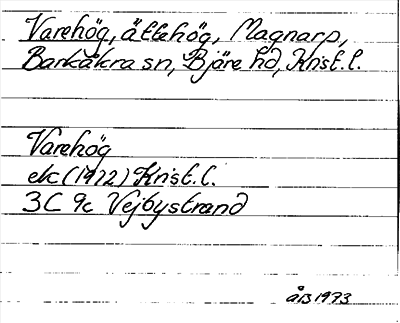 Varehög, ättehög, Magnarp,
Barkåkra sn, Bjäre hd, Krist.l.
Varehög
ek (1972) Krist.l.
3C 9c Vejbystrand
ÅB 1973